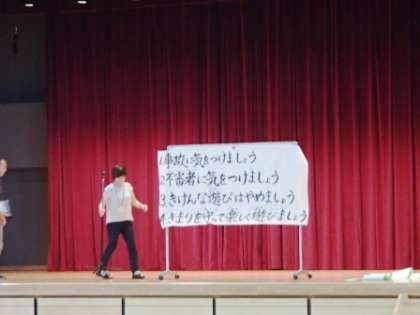 1.事故に気をつけましょう
2.不審者に気をつけましょう
3.きけんな遊びはやめましょう
4.きまりを守って楽しく遊びましょう